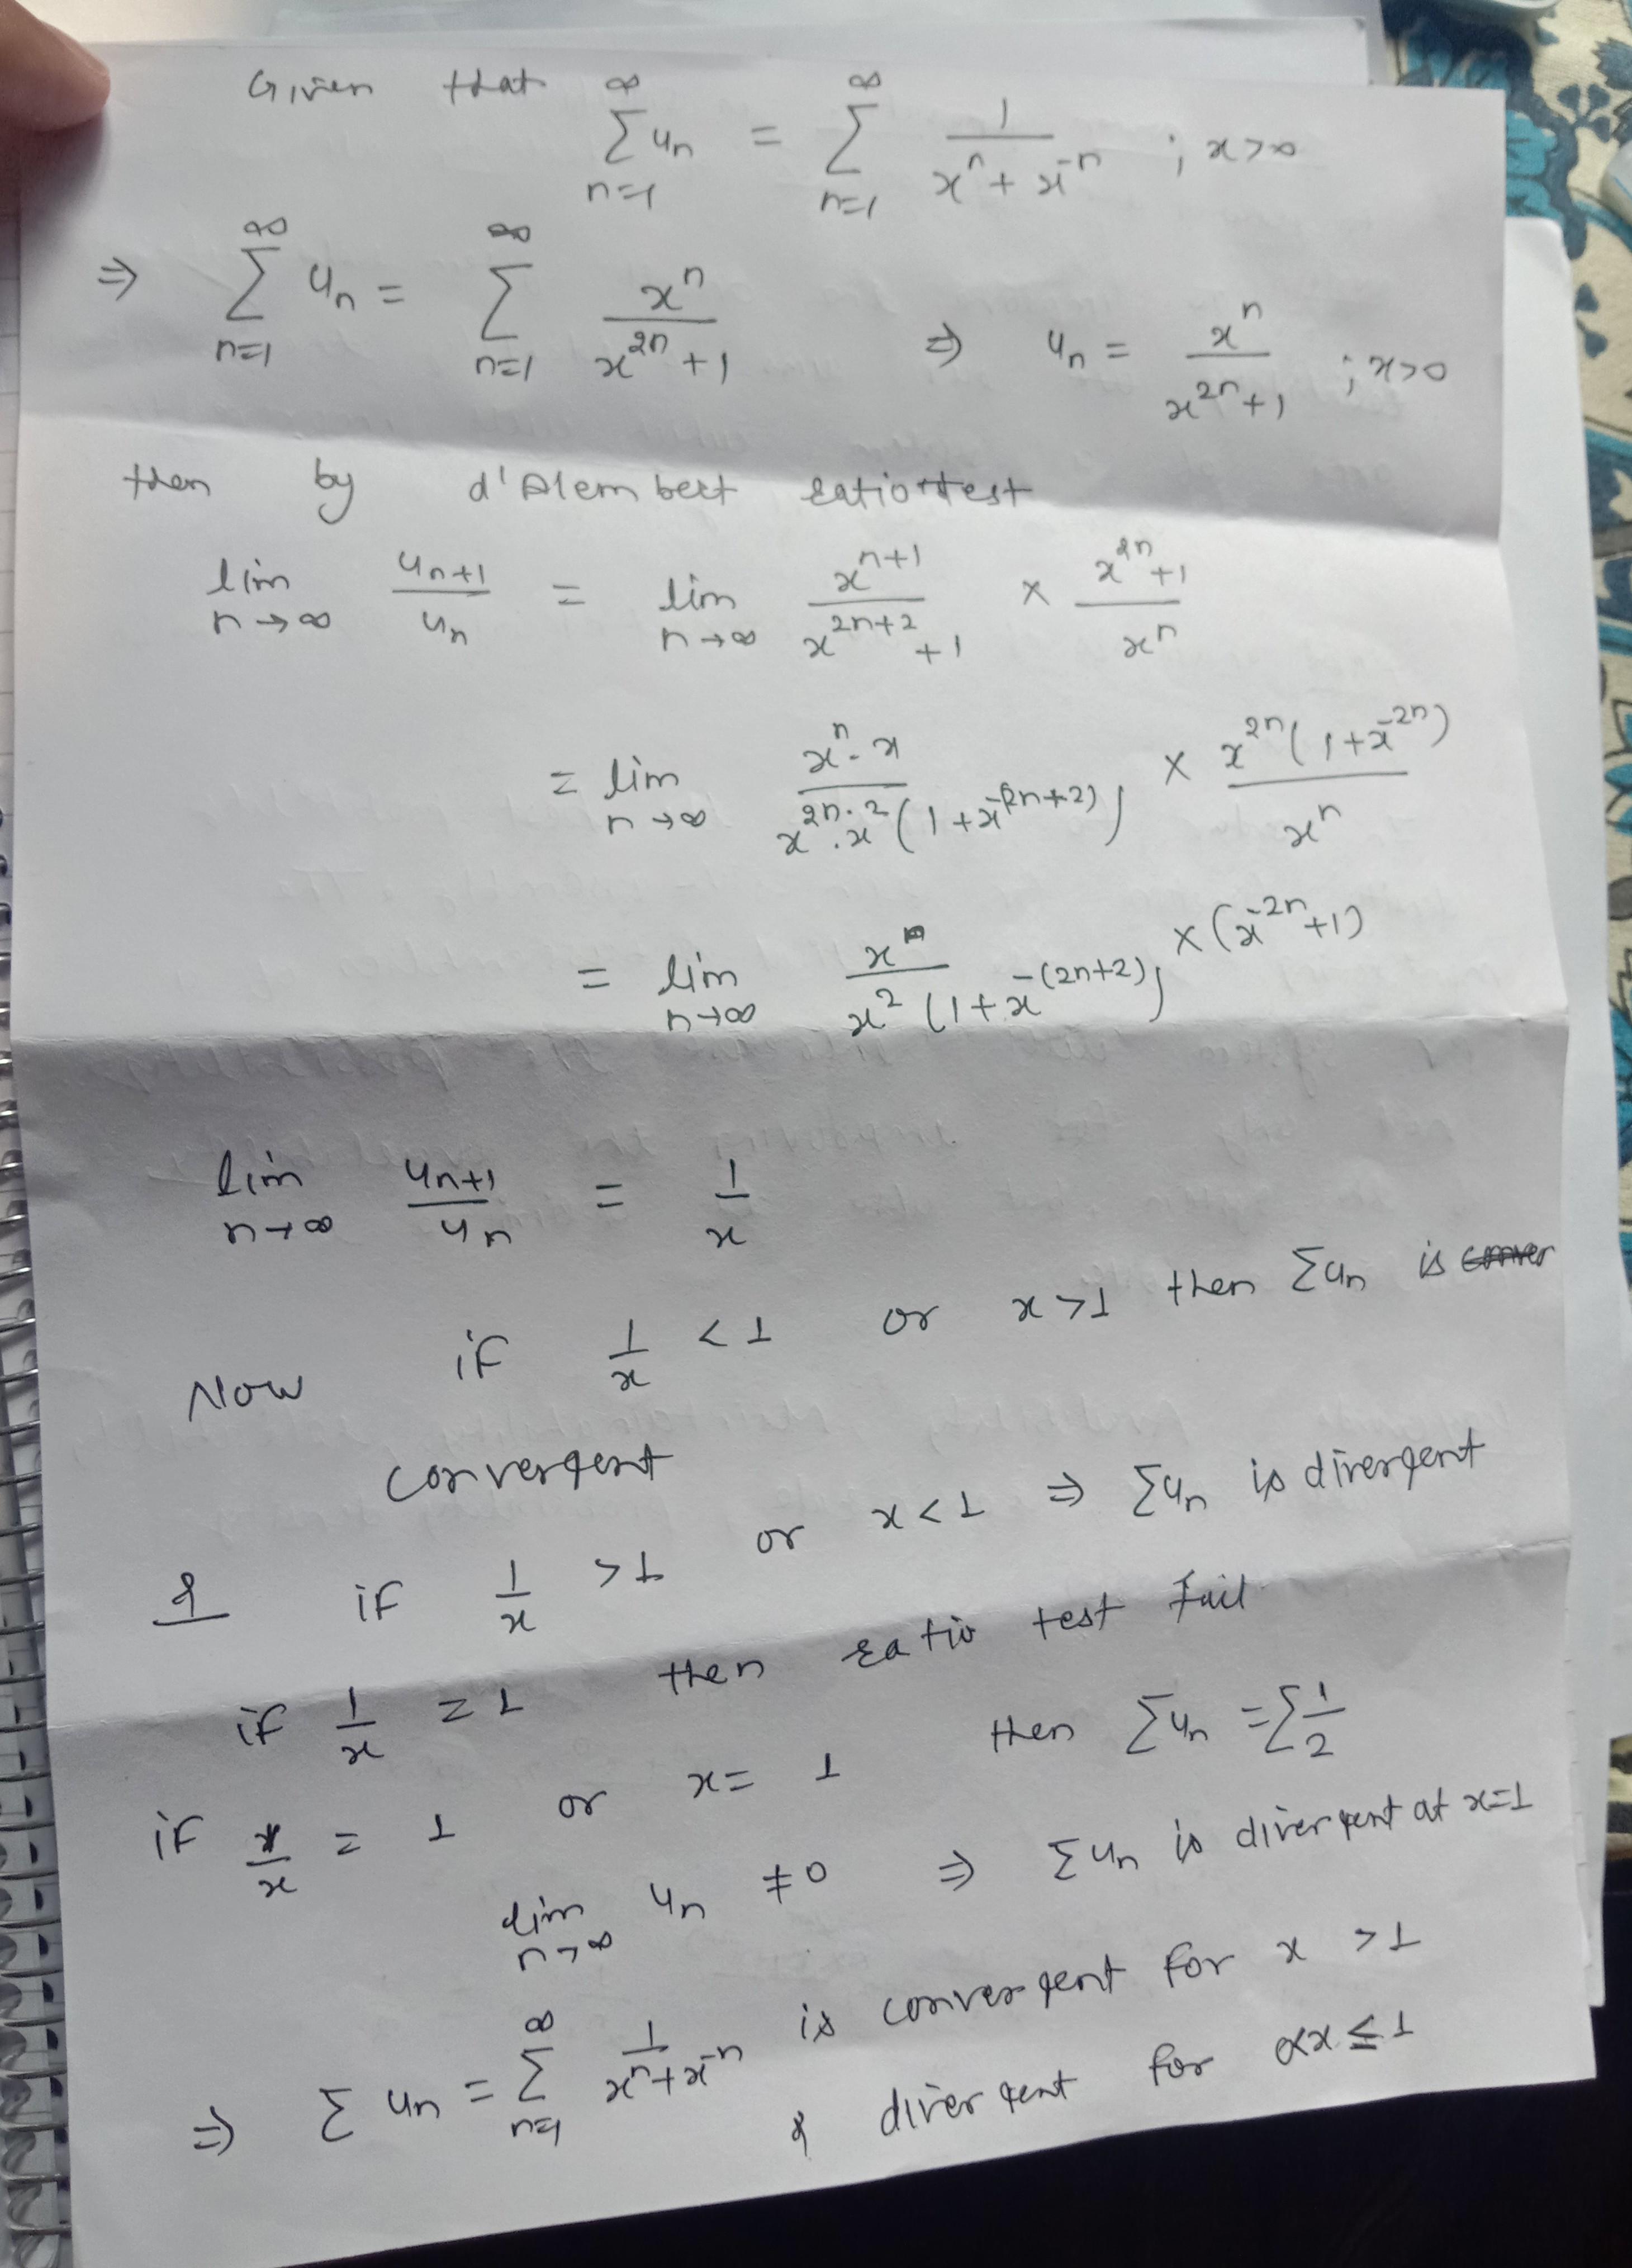 Given that ∞∑n=1 un = ∞∑n=1 1/(x^n + x^-n) ; x>0
⇒ ∞∑n=1 un = ∞∑n=1 x^n/(x^2n + 1) ⇒ un = x^n/(x^2n + 1) ; x>0
then by d'Alembert ratio test
lim n→∞ un+1/un = lim n→∞ x^(n+1)/(x^(2n+2) + 1) × (x^2n + 1)/x^n
= lim n→∞ x^n · x/(x^2n · x^2 (1 + x^-(2n+2))) × x^2n (1 + x^-2n)/x^n
= lim n→∞ x/(x^2 (1 + x^-(2n+2))) × (x^-2n + 1)
lim n→∞ un+1/un = 1/x
Now if 1/x < 1 or x > 1 then ∑un is
convergent
& if 1/x > 1 or x < 1 ⇒ ∑un is divergent
if 1/x = 1 then ratio test fail
if 1/x = 1 or x = 1 then ∑un = ∑1/2
lim n→∞ un ≠ 0 ⇒ ∑un is divergent at x=1
⇒ ∑ un = ∞∑n=1 1/(x^n + x^-n) is convergent for x > 1
& divergent for x ≤ 1